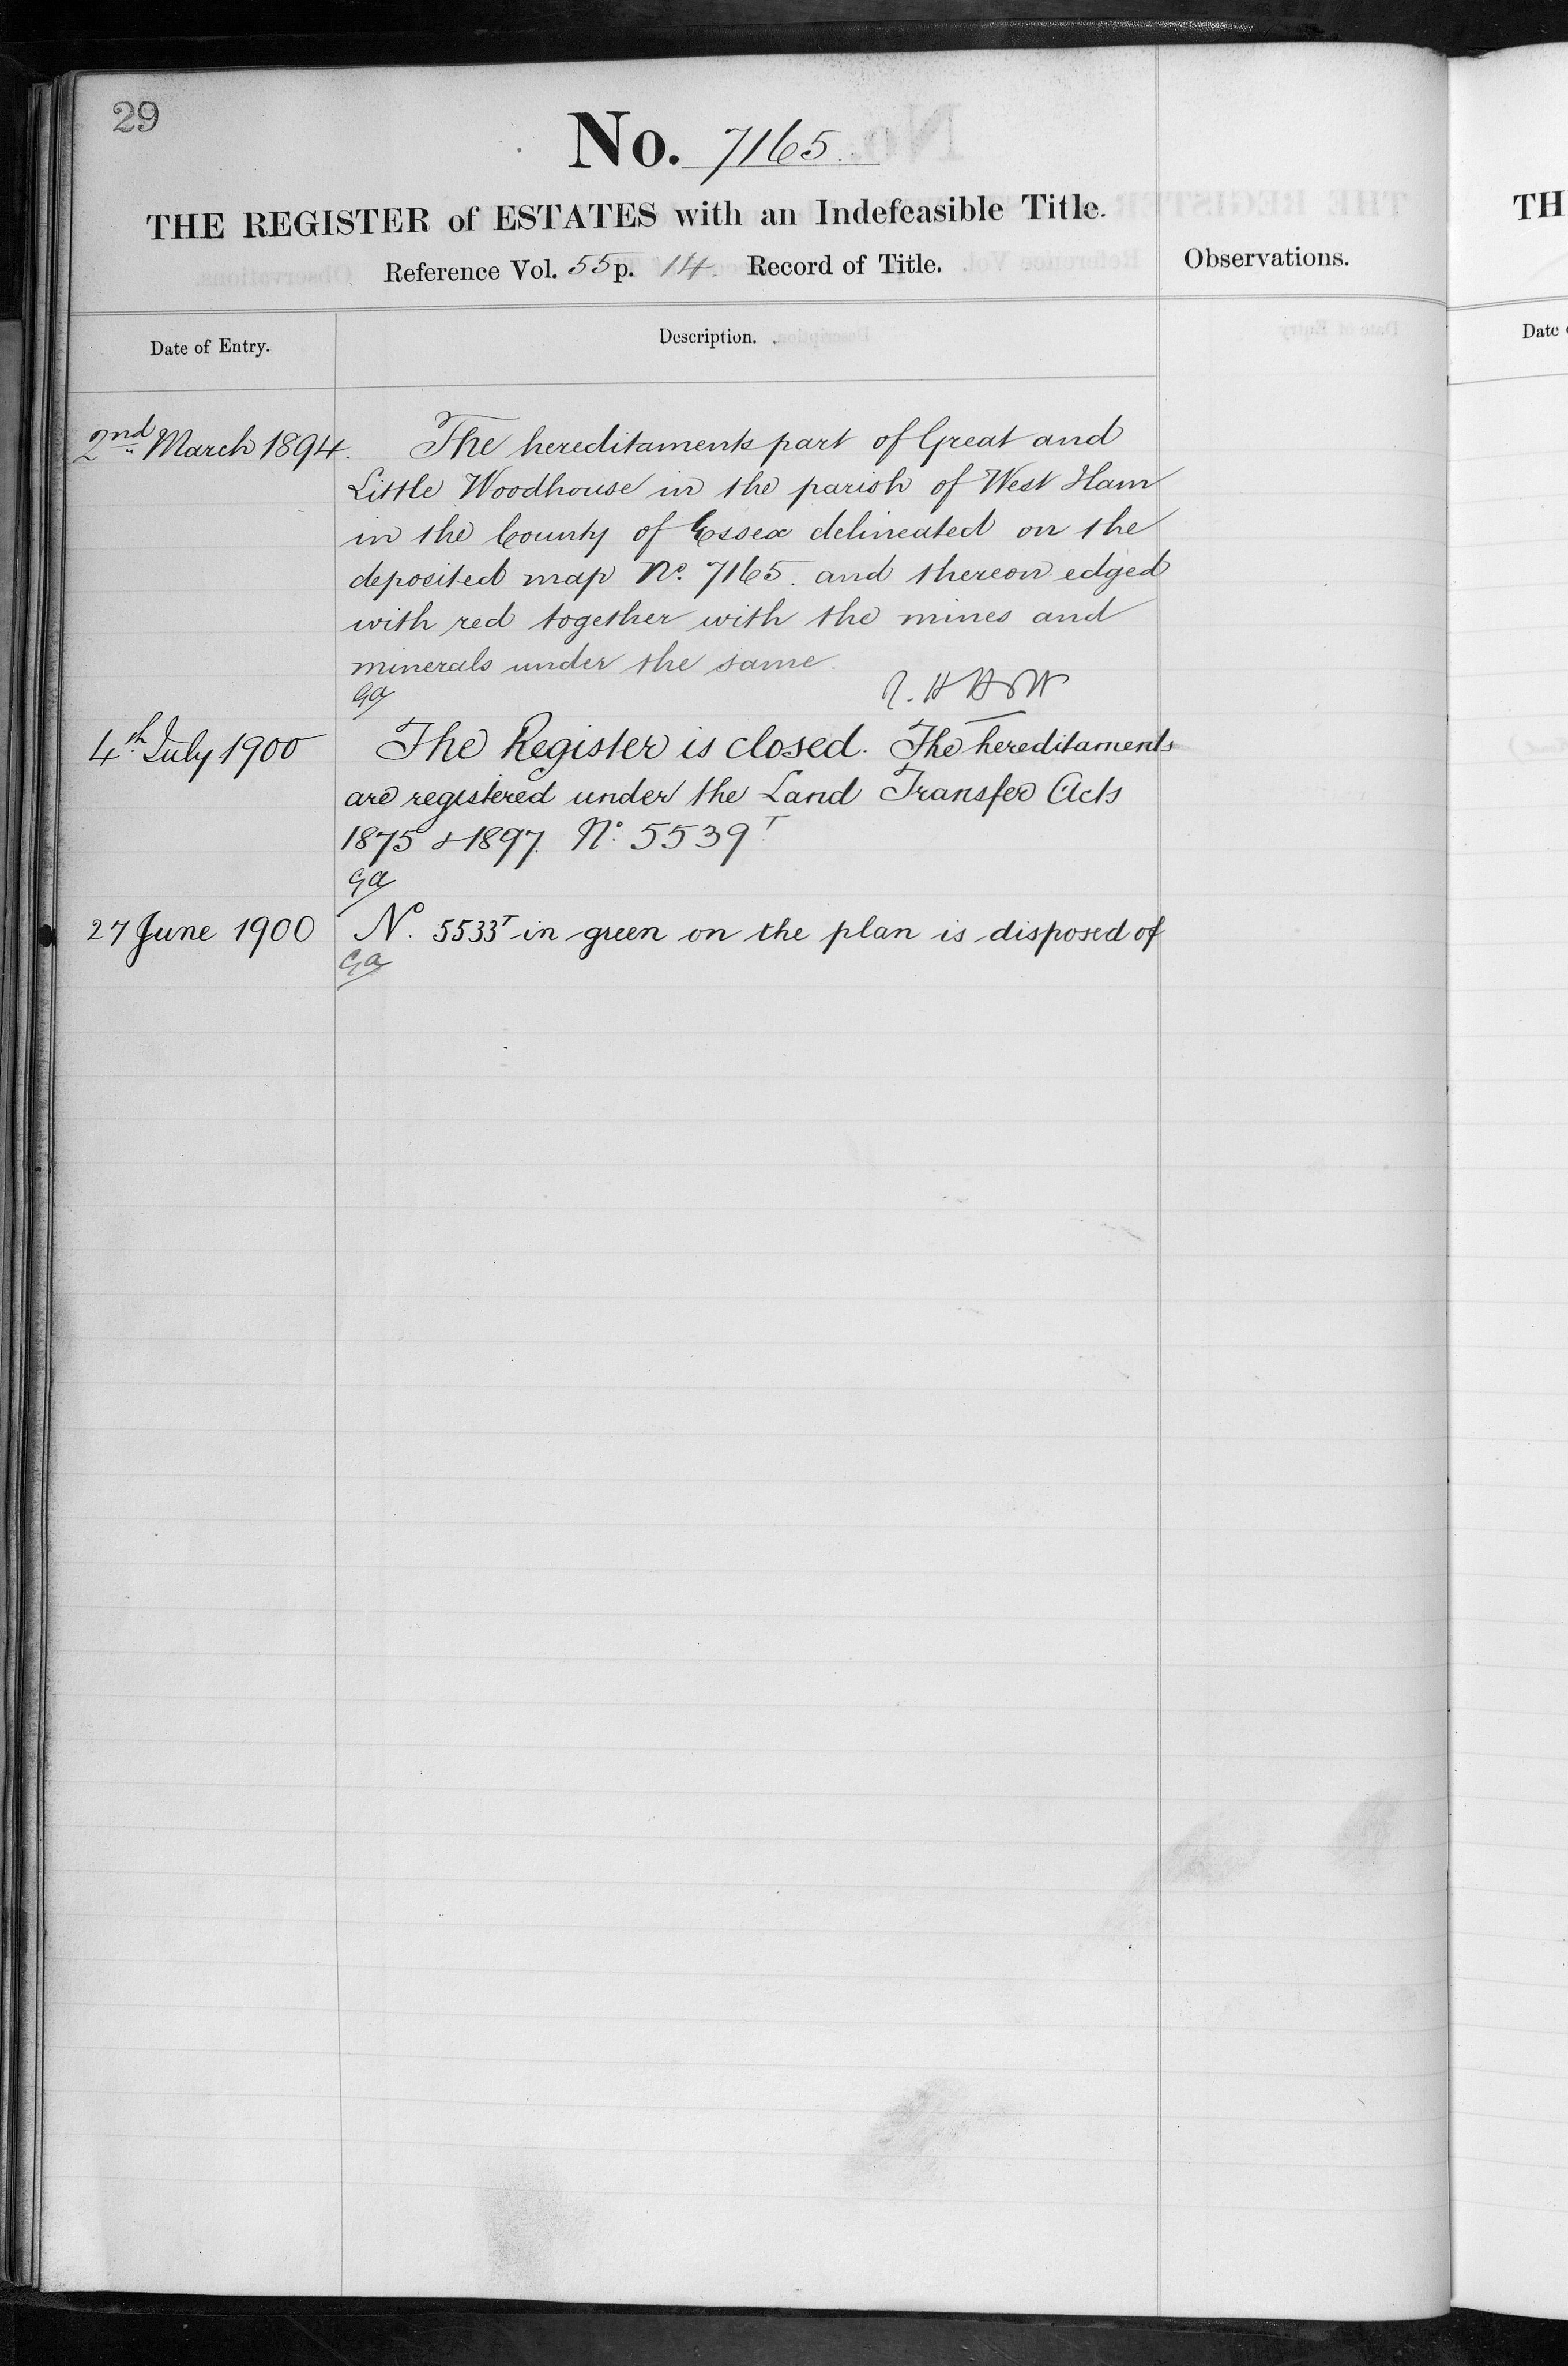 29
No. 7165.
THE REGISTER of ESTATES with an Indefeasible Title.
Reference Vol. 55 p. 14. Record of Title.
Observations.
Date of Entry.
Description.
2nd March 1894.
The hereditaments part of Great and
Little Woodhouse in the parish of West Ham
in the County of Essex delineated on the
deposited map No. 7165. and thereon edged
with red together with the mines and
minerals under the same.
Ga
4th July 1900
The Register is closed. The hereditaments
are registered under the Land Transfer Acts
1875 & 1897. No. 5539T
Ga
27 June 1900
No. 5533T in green on the plan is disposed of
Ga
TH
Date